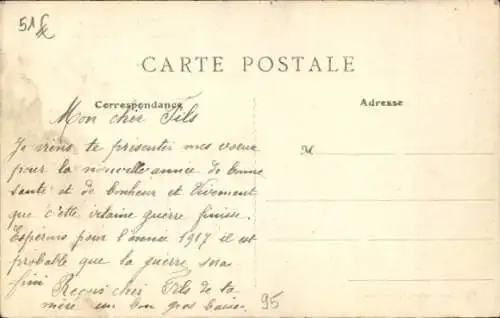 51 fx
CARTE POSTALE
Correspondance
Adresse
M
Mon cher Fils
Je viens te présenter mes voeux
pour la nouvelle année de bonne
santé et de bonheur et Vivement
que c'ette vilaine guerre finisse.
Espérons pour l'année 1917 il est
probable que la guerre sera
fini Reçois cher Fils de ta
mère un bon gros baiser
95